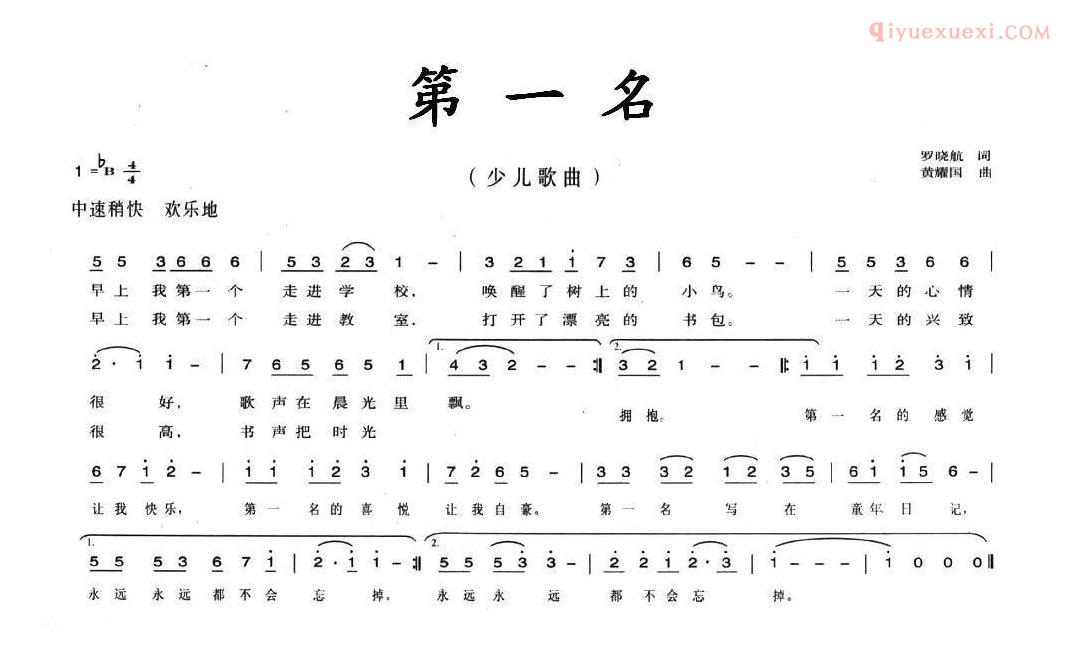 qiyuexuexi.COM
第一名
罗晓航 词
1=♭B 4/4 (少儿歌曲) 黄耀国 曲
中速稍快 欢乐地
5 5 3 6 6 6 | 5 3 2 3 1 - | 3 2 1 1 7 3 | 6 5 - - | 5 5 3 6 6 |
早上我第一个 走进学校, 唤醒了树上的小鸟。 一天的心情
早上我第一个 走进教室, 打开了漂亮的书包。 一天的兴致
1. 2.
2· 1 1 - | 7 6 5 6 5 1 | 4 3 2 - - :‖ 3 2 1 - - ‖: 1 1 1 2 3 1 |
很好, 歌声在晨光里飘。 拥抱。 第一名的感觉
很高, 书声把时光
6 7 1 2 - | 1 1 1 2 3 1 | 7 2 6 5 - | 3 3 3 2 1 2 3 5 | 6 1 1 5 6 - |
让我快乐, 第一名的喜悦 让我自豪。 第一名写在童年日记,
1. 2.
5 5 5 3 6 7 1 | 2· 1 1 - :‖ 5 5 5 3 3 - | 2 2 1 2· 3 | 1 - - - | 1 0 0 0 ‖
永远永远都不会忘掉。 永远永远都不会忘掉。